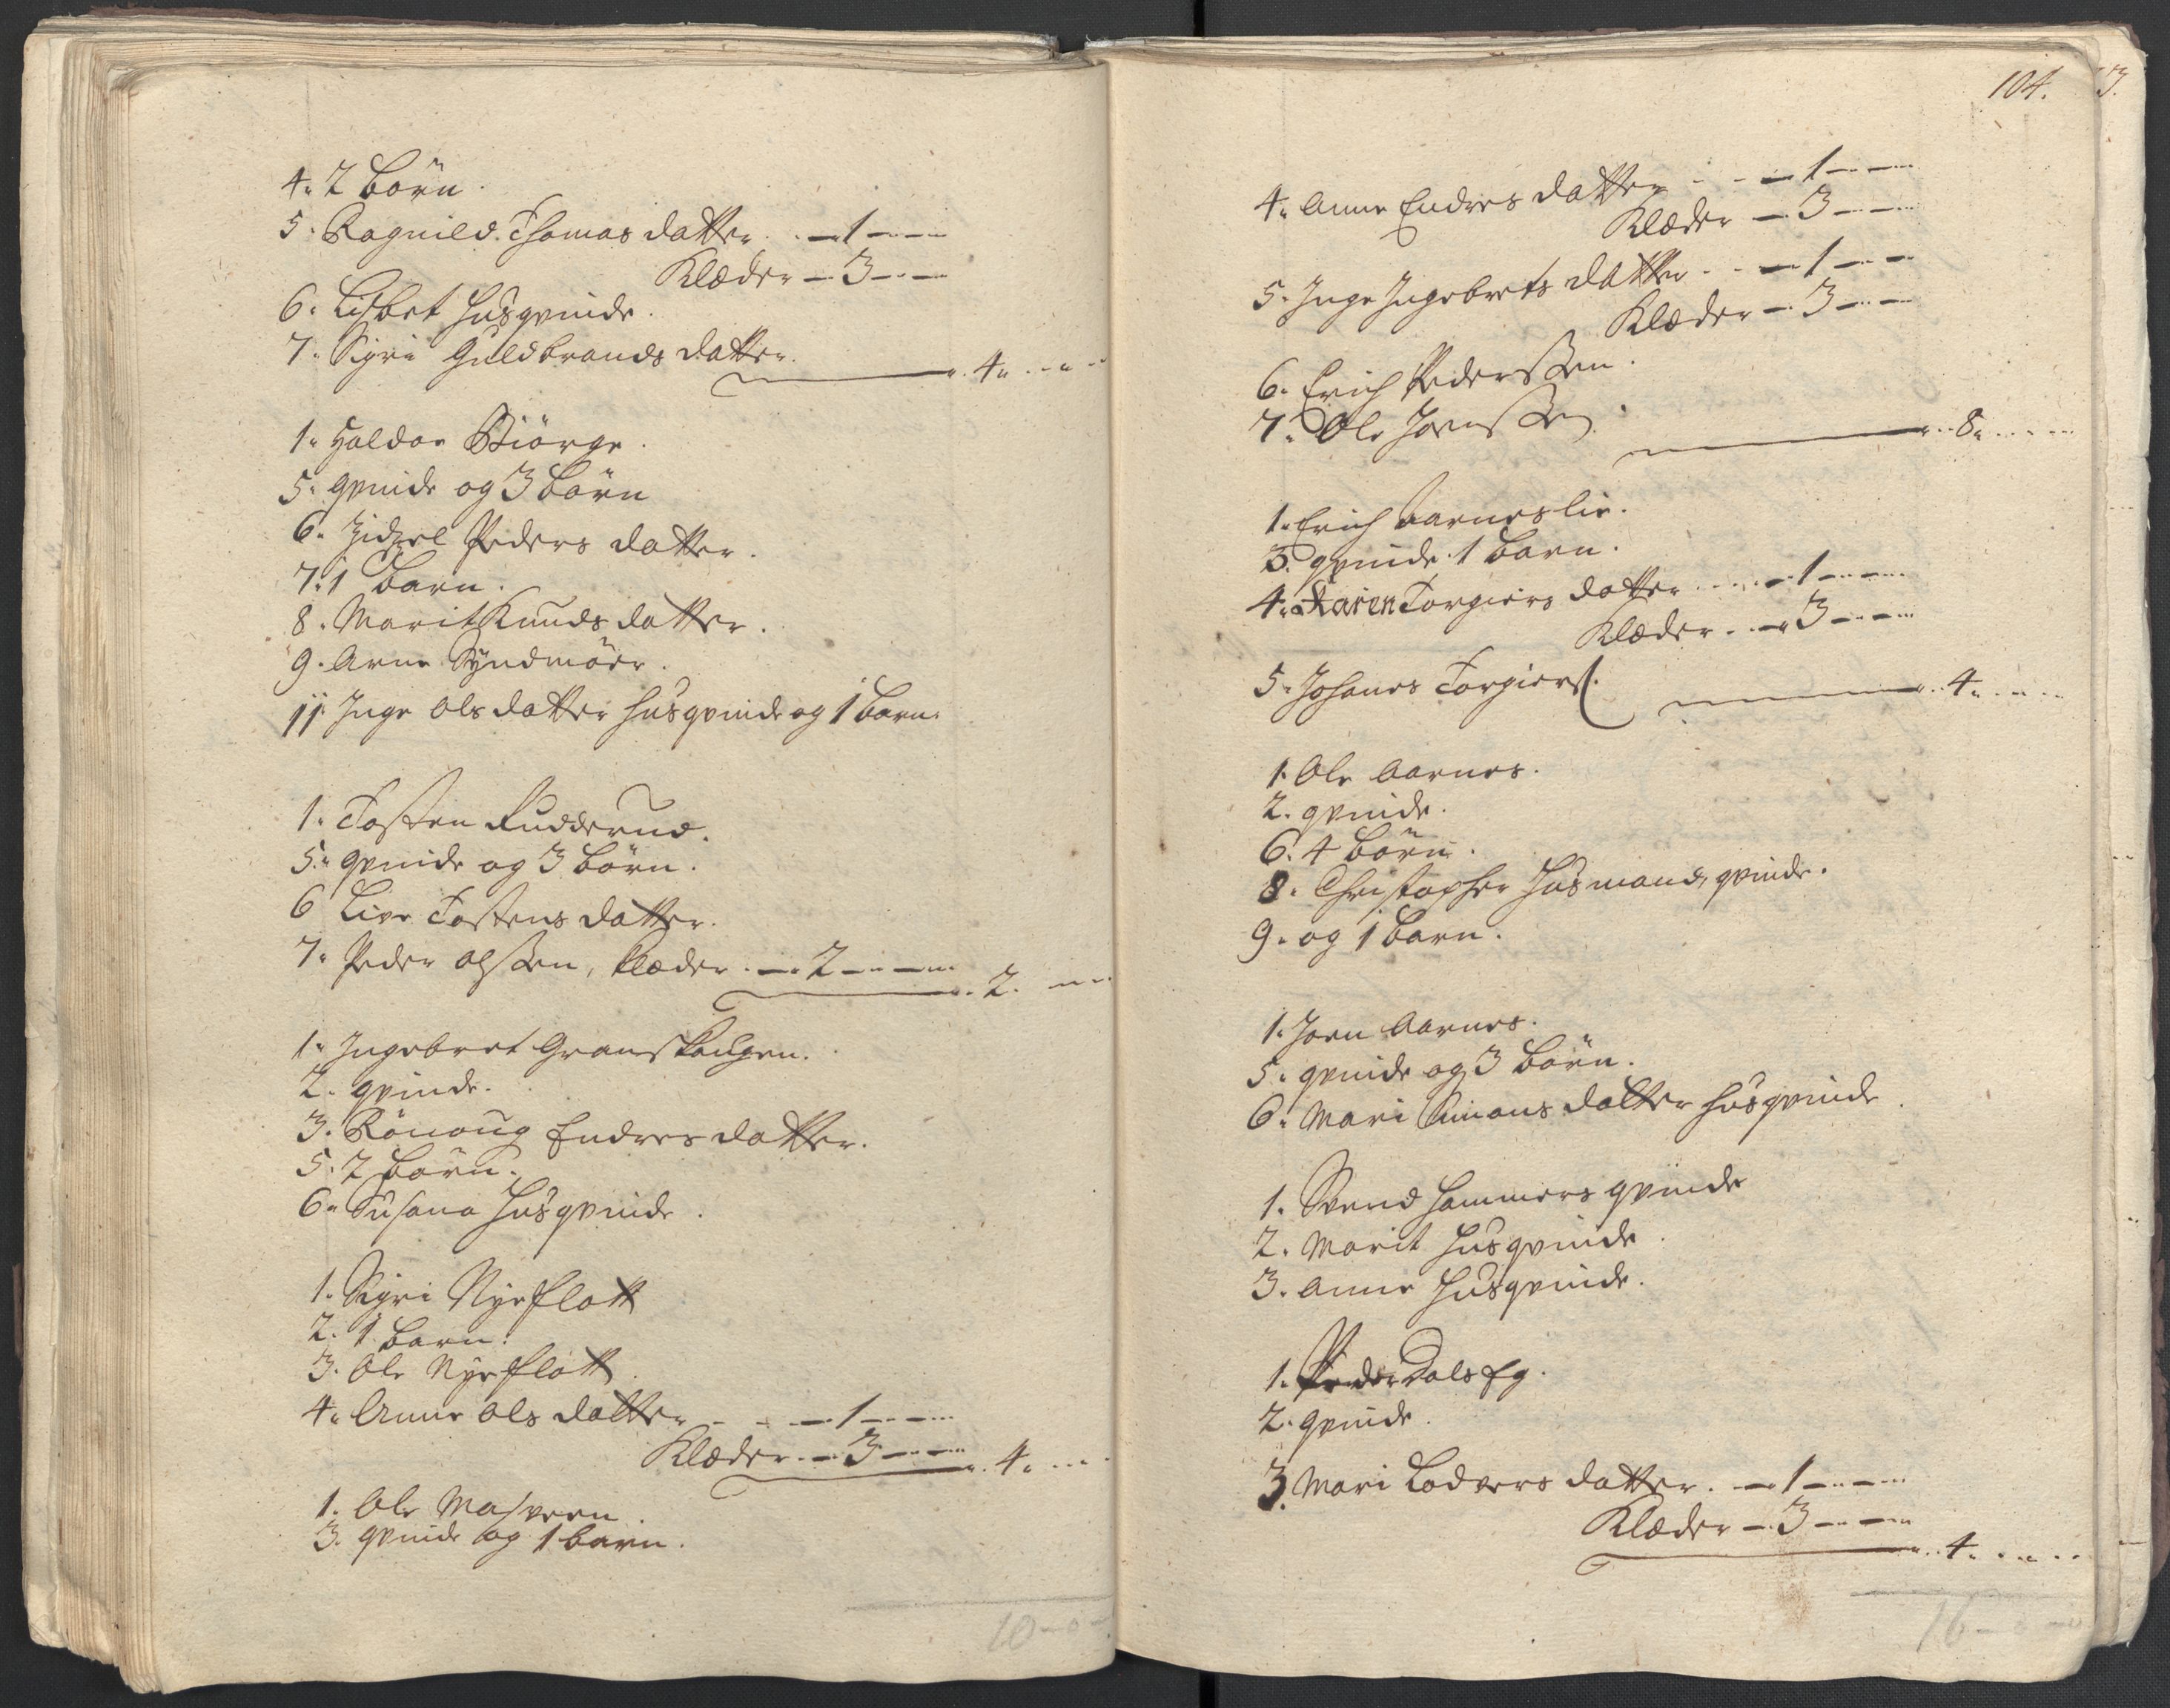 4. 2 børn.
5. Ragnild Thomas datter. . — 1 — — —
Klæder — 3 — —
6. Lisbet husqvinde.
7. Sigri Guldbrands datter.
4 . . . .
1. Haldor Biørge.
5. qvinde og 3 børn
6. Zidzel Peders datter.
7. 1 barn.
8. Marit Knuds datter.
9. Arne Syndmöer.
11. Inge Ols datter husqvinde og 1 barn.
1. Tosten Rudderud.
5. qvinde og 3 børn.
6 Live Tostens datter.
7. Peder Olssen, klæder . — 2 — — —
2. — —
1. Ingebret Granskougen.
2. qvinde.
3. Rönoug Endres datter.
5. 2 børn.
6. Susana husqvinde.
1. Sigri Nyeflott
2. 1 barn.
3. Ole Nyeflott.
4. Anne Ols datter - - — 1 — — —
Klæder . — 3 — —
4. . . .
1. Ole
3. qvinde og 1 barn.
10 - 0 -
104.
3.
4. Anne Endres datter - - — 1 — — —
Klæder — 3 — —
5. Inge Ingebrets datter . . — 1 — — —
Klæder — 3 — —
6. Erich Pederssen.
7. Ole Jonssen.
8. . . . .
1. Erich Aarneslie.
3. qvinde. 1 barn.
4. Karen Torgiers datter . . . — 1 — — —
Klæder . . — 3 — — —
5. Johanes Torgiers.
4. . . .
1. Ole Aarnes.
2. qvinde.
6. 4 børn.
8. Christopher Husmand, qvinde.
9. og 1 barn.
1. Joen Aarnes.
5. qvinde og 3 børn.
6. Mari Simons datter husqvinde.
1. Svend Hammers qvinde
2. Marit husqvinde.
3. Anne husqvinde.
1. Peder Dals
2. qvinde.
3. Mari Lodvers datter. — 1 — — —
Klæder — 3 — — —
4. . . . .
16 - 0 - 0